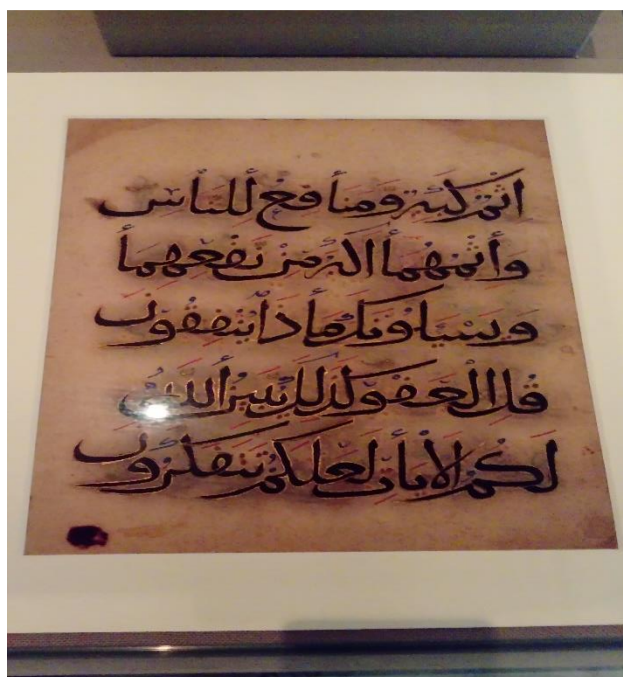 اثم كبير ومنافع للناس
وأثمهما اكبر من نفعهما
ويسئلونك ماذا ينفقون
قل العفو كذلك يبين الله
لكم الأيات لعلكم تتفكرون